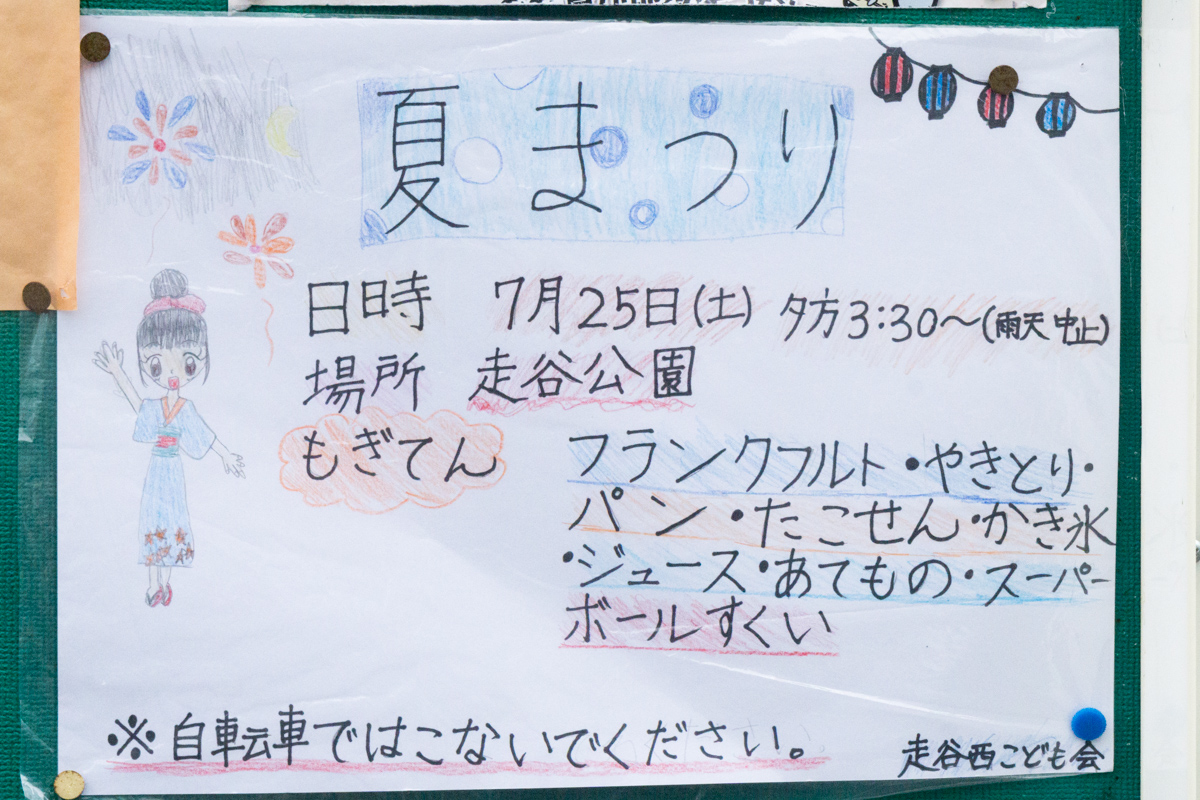 夏まつり
日時 7月25日(土) 夕方3:30〜(雨天中止)
場所 走谷公園
もぎてん フランクフルト・やきとり・
パン・たこせん・かき氷
・ジュース・あてもの・スーパー
ボールすくい
※自転車ではこないでください。
走谷西こども会